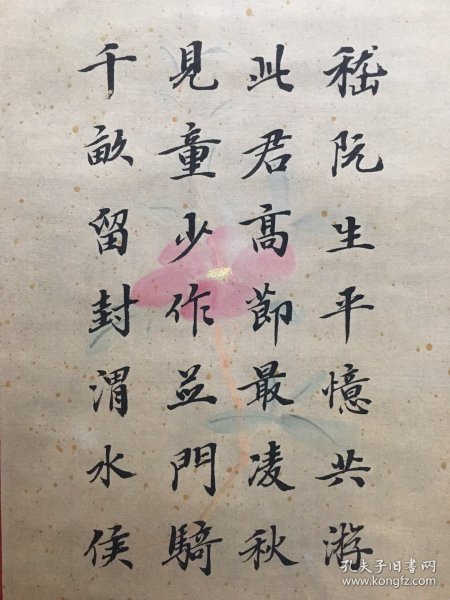 嵇阮生平憶共游
此君高節最凌秋
見童少作並門騎
千畝留封渭水侯
孔夫子旧书网
www.kongfz.com